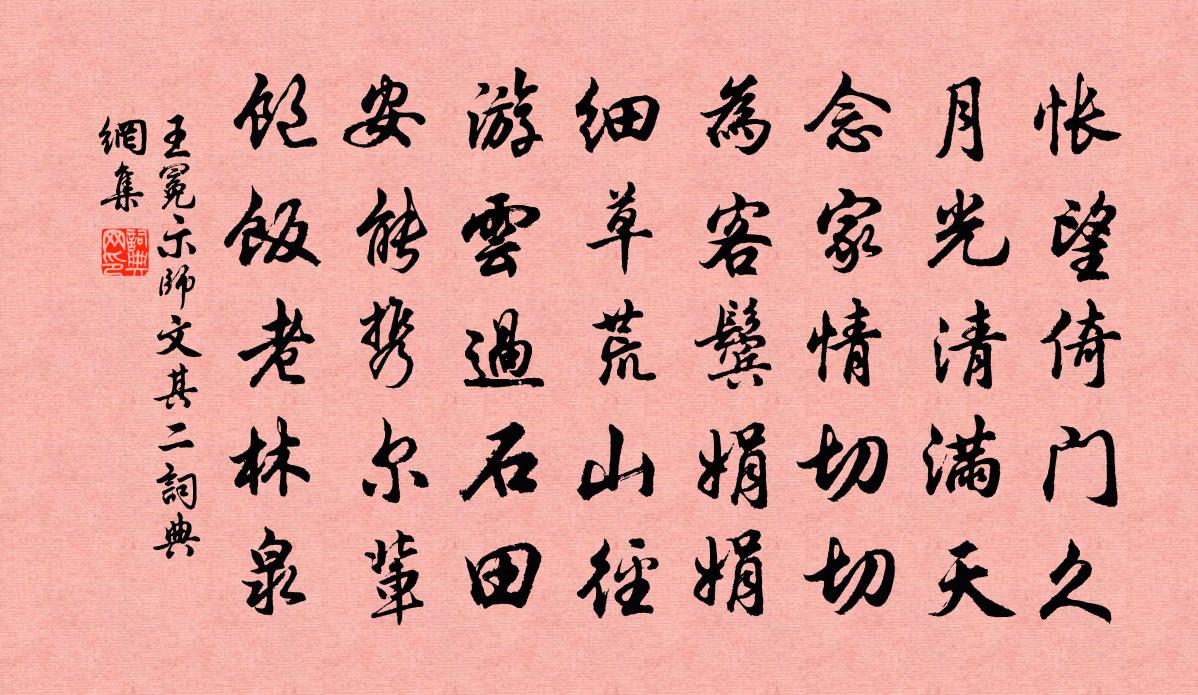 怅望倚门久
月光清满天
念家情切切
為客鬓娟娟
细草荒山径
游雲過石田
安能携尔輩
飽飯老林泉
王冕示師文其二詞典
網集
詞典
网印